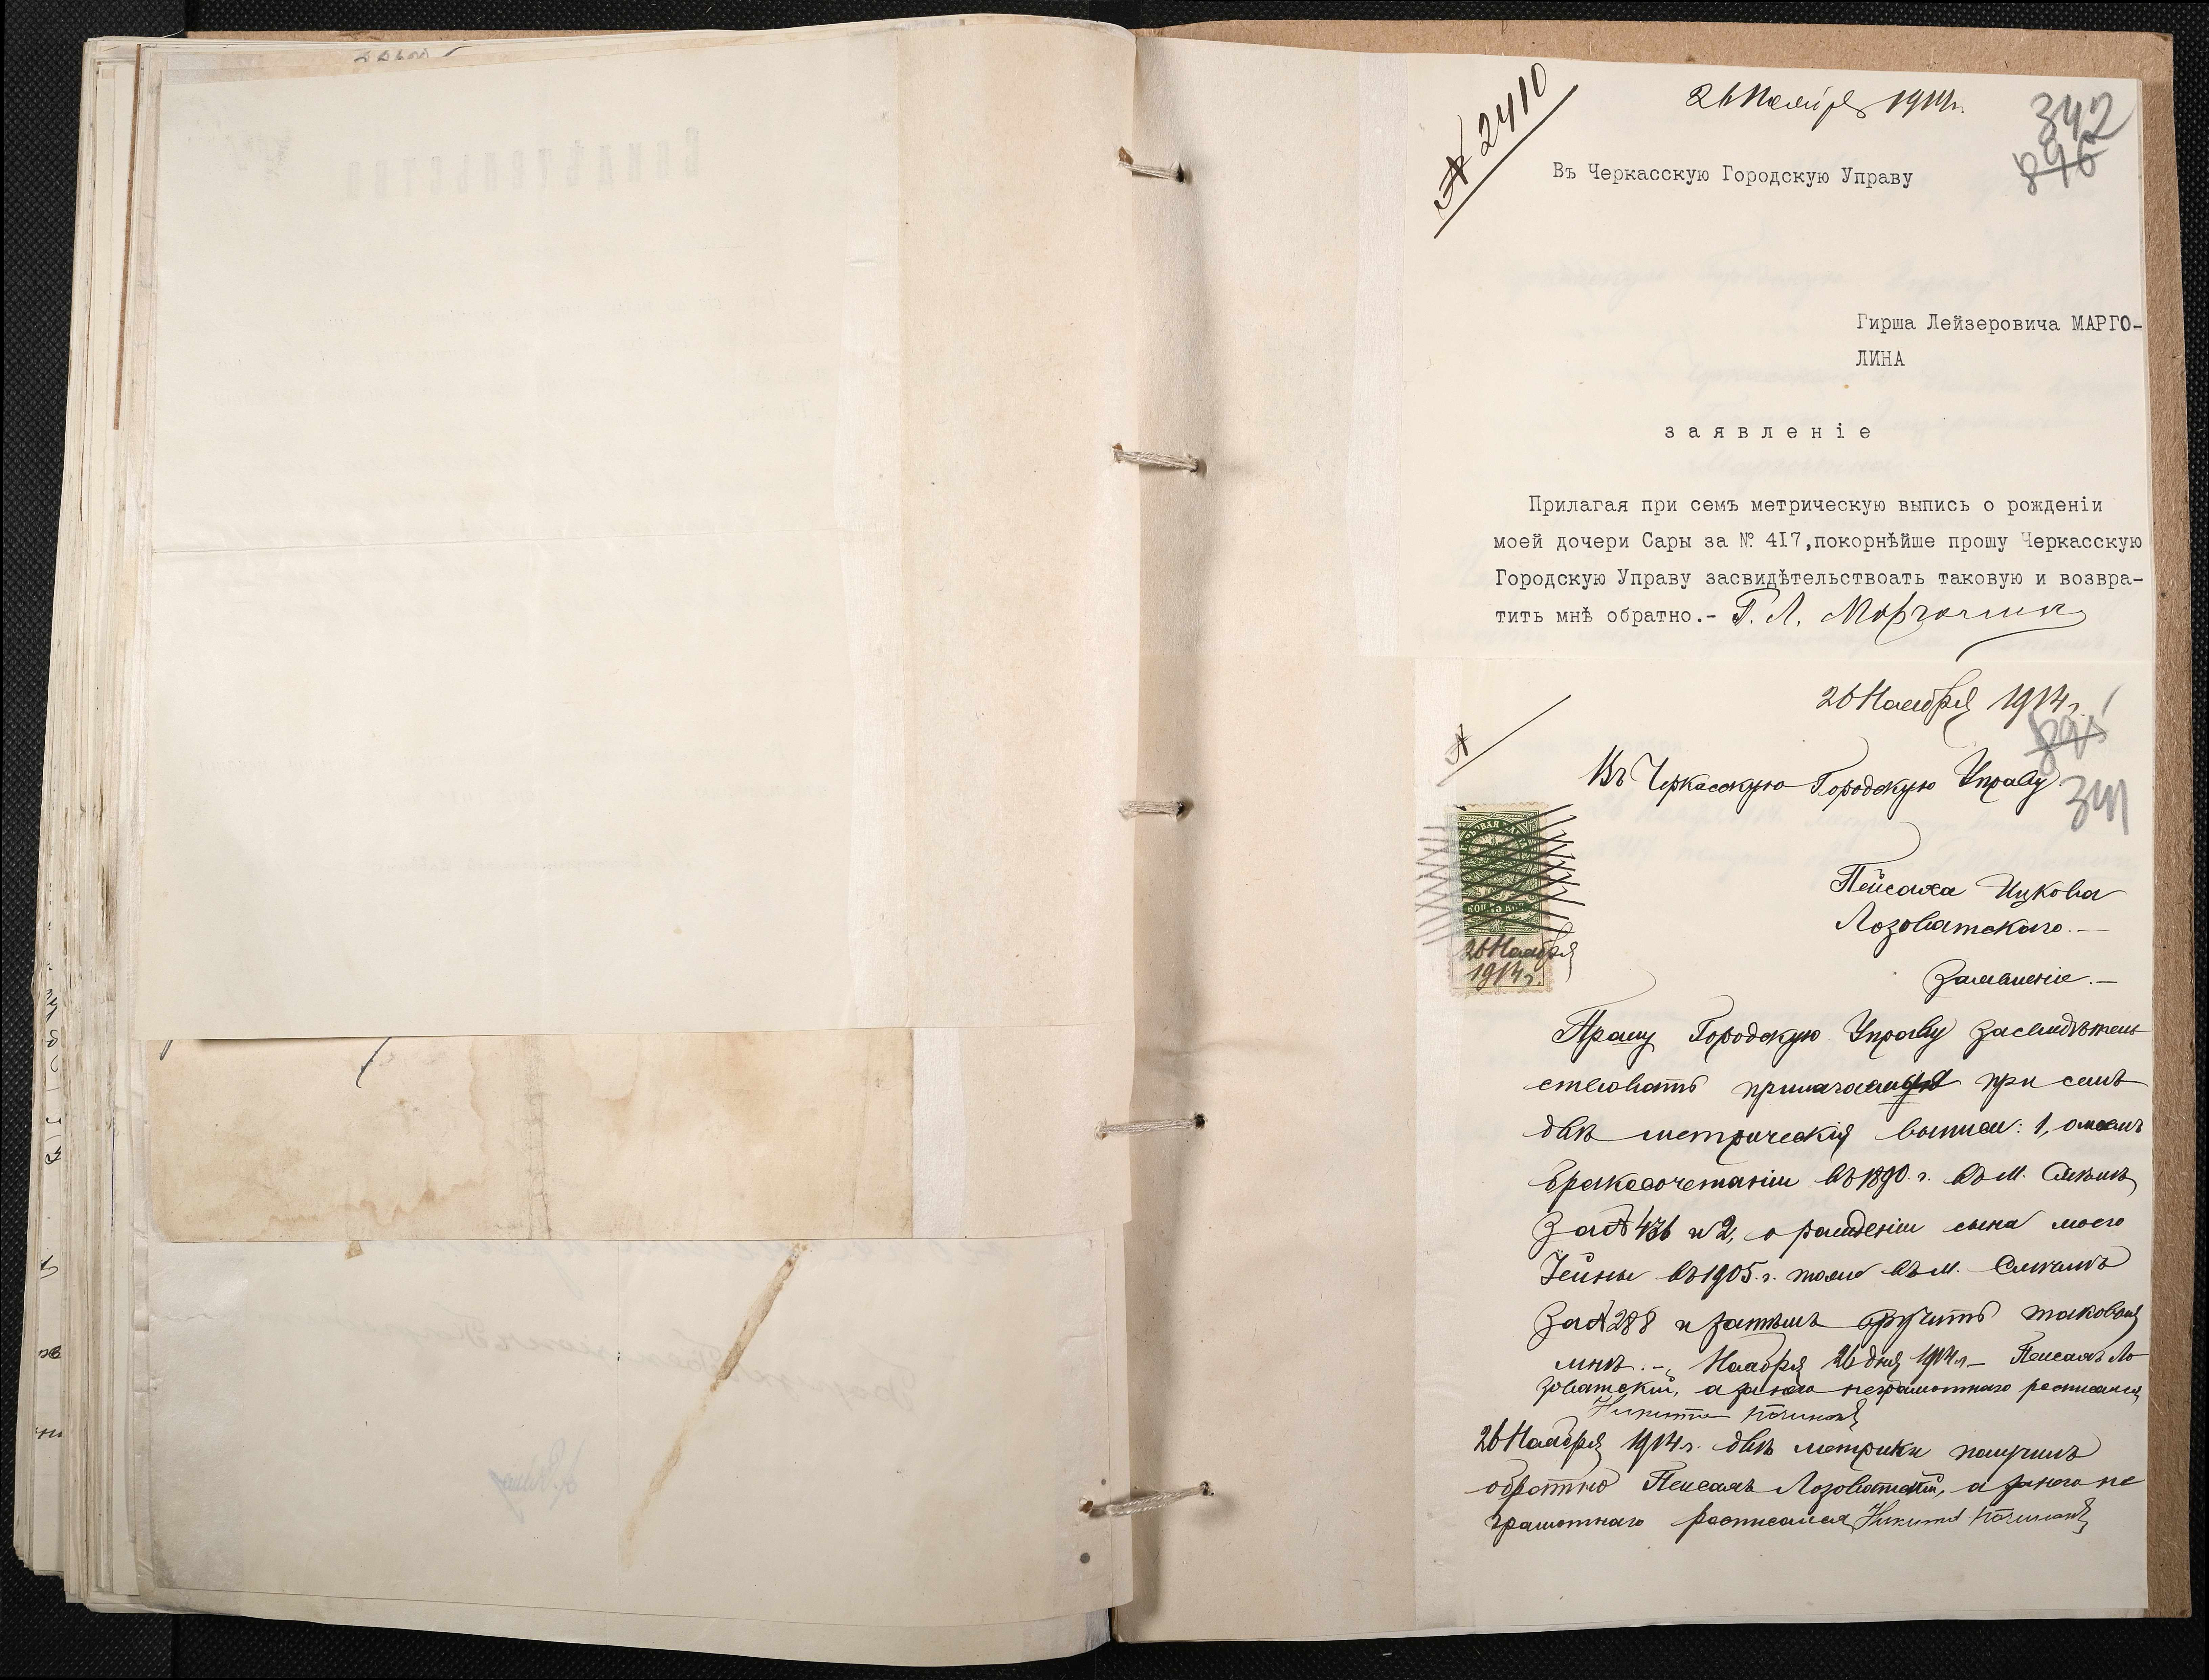 № 2410
26 Ноября 1914 г.
342
896
Въ Черкасскую Городскую Управу
Гирша Лейзеровича МАРГО-
ЛИНА
заявленіе
Прилагая при семъ метрическую выпись о рожденіи
моей дочери Сары за № 417,покорнѣйше прошу Черкасскую
Городскую Управу засвидѣтельствоать таковую и возвра-
тить мнѣ обратно.- Г. Л. Марголинъ
26 Ноября 1914 г.
895
№
Въ Черкасскую Городскую Управу
341
Пейсаха Ицкова
Лозоватскаго.—
Заявленіе.—
26 Ноября
1914 г.
Прошу Городскую Управу засвидѣтель
ствовать прилагаемыя при семъ
двѣ метрическія выписи: 1, о моемъ
бракосочетаніи въ 1890 г. въ м. Смѣлѣ
за № 436 и 2, о рожденіи сына моего
въ 1905 г. тоже въ м. Смѣлѣ
за № 288 и затѣмъ вручить таковыя
мнѣ.— Ноября 26 дня 1914 г.— Пейсахъ Ло
зоватскій, а за него неграмотнаго росписался
Никита
26 Ноября 1914 г. двѣ метрики получилъ
обратно Пейсахъ Лозоватскій, а за него не
грамотнаго росписался Никита